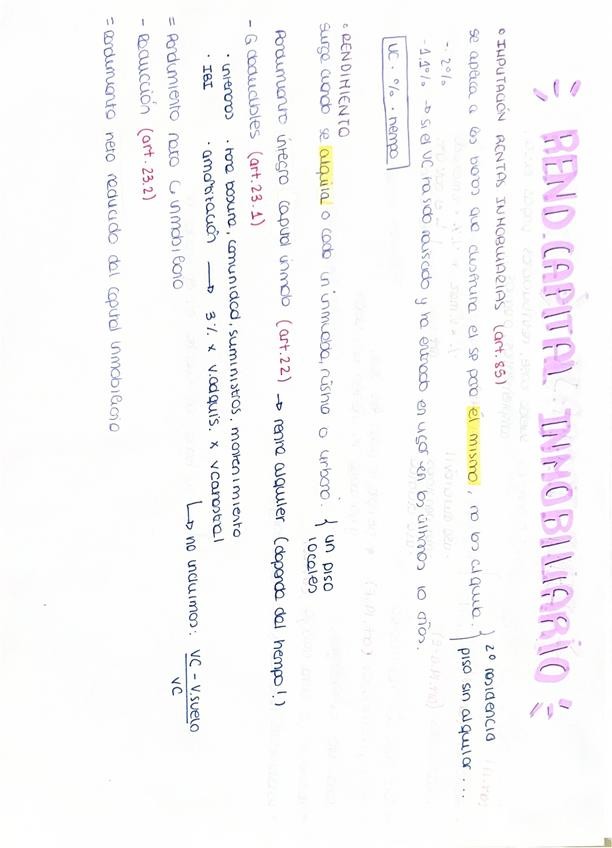 REND. CAPITAL INMOBILIARIO
• IMPUTACIÓN RENTAS INMOBILIARIAS (art. 85)
se aplica a los bienes que disfruta el sp para él mismo, no los alquila. } 2º residencia
piso sin alquilar ...
- 2%
- 1.1% → si el VC ha sido revisado y ha entrado en vigor en los últimos 10 años.
VC · % · tiempo
• RENDIMIENTO
surge cuando se alquila o cede un inmueble, rústico o urbano. { un piso
locales
Rendimiento íntegro capital inmob (art.22) → renta alquiler (depende del tiempo!)
- G deducibles (art. 23.1)
· intereses · tasa basura, comunidad, suministros, mantenimiento
· IBI · amortización → 3% x V.adquis. x Vcatastral
↳ no incluimos: VC - V.suelo / VC
= Rendimiento neto C inmobiliario
- Reducción (art. 23.2)
= Rendimiento neto reducido del capital inmobiliario